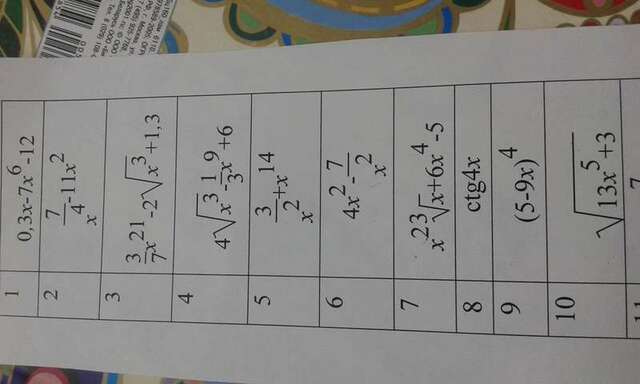 1 0,3x-7x⁶-12
2 7/x⁴-11x²
3 3/7x²¹-2√x³+1,3
4 4√x³-1/3x⁹+6
5 3/x²+x¹⁴
6 4x²-7/x²
7 x²∛x+6x⁴-5
8 ctg4x
9 (5-9x)⁴
10 √13x⁵+3
11